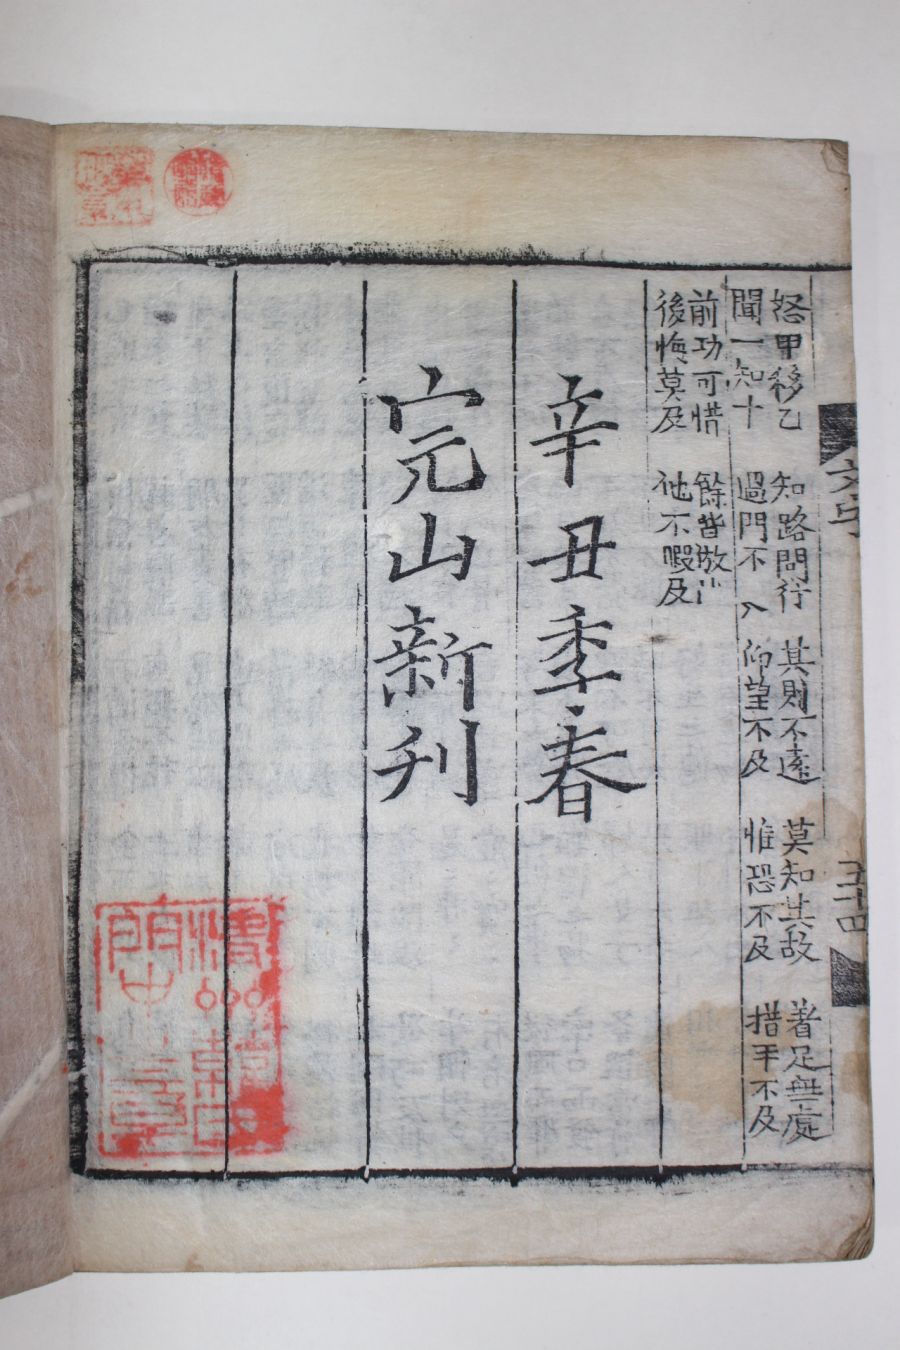 五十四
怒甲移乙 知路問行 其則不遠 莫知其故 著足無處
聞一知十 過門不入 仰望不及 惟恐不及 措手不及
前功可惜 餘皆放此
後悔莫及 他不暇及
辛丑季春
完山新刊